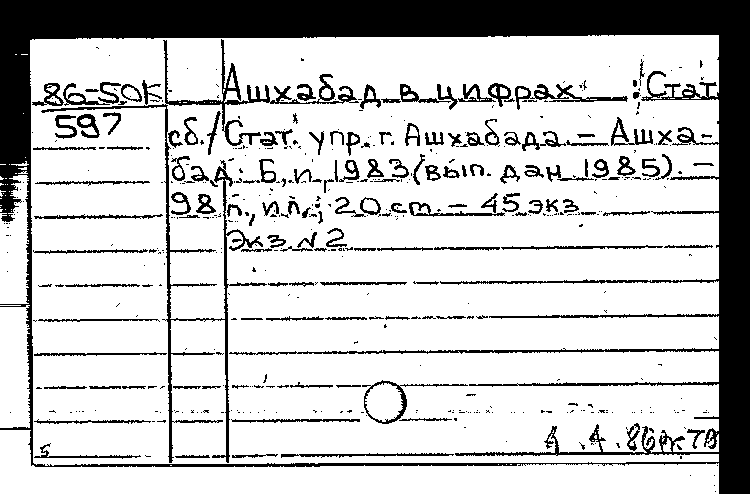 86-50К Ашхабад в цифрах : Стат.
597 сб./Стат. упр. г. Ашхабада. – Ашха-
бад: Б, и, 1983 (вып. дан 1985). –
98 п., ил.; 20 ст. – 45 экз
Экз. N 2
5